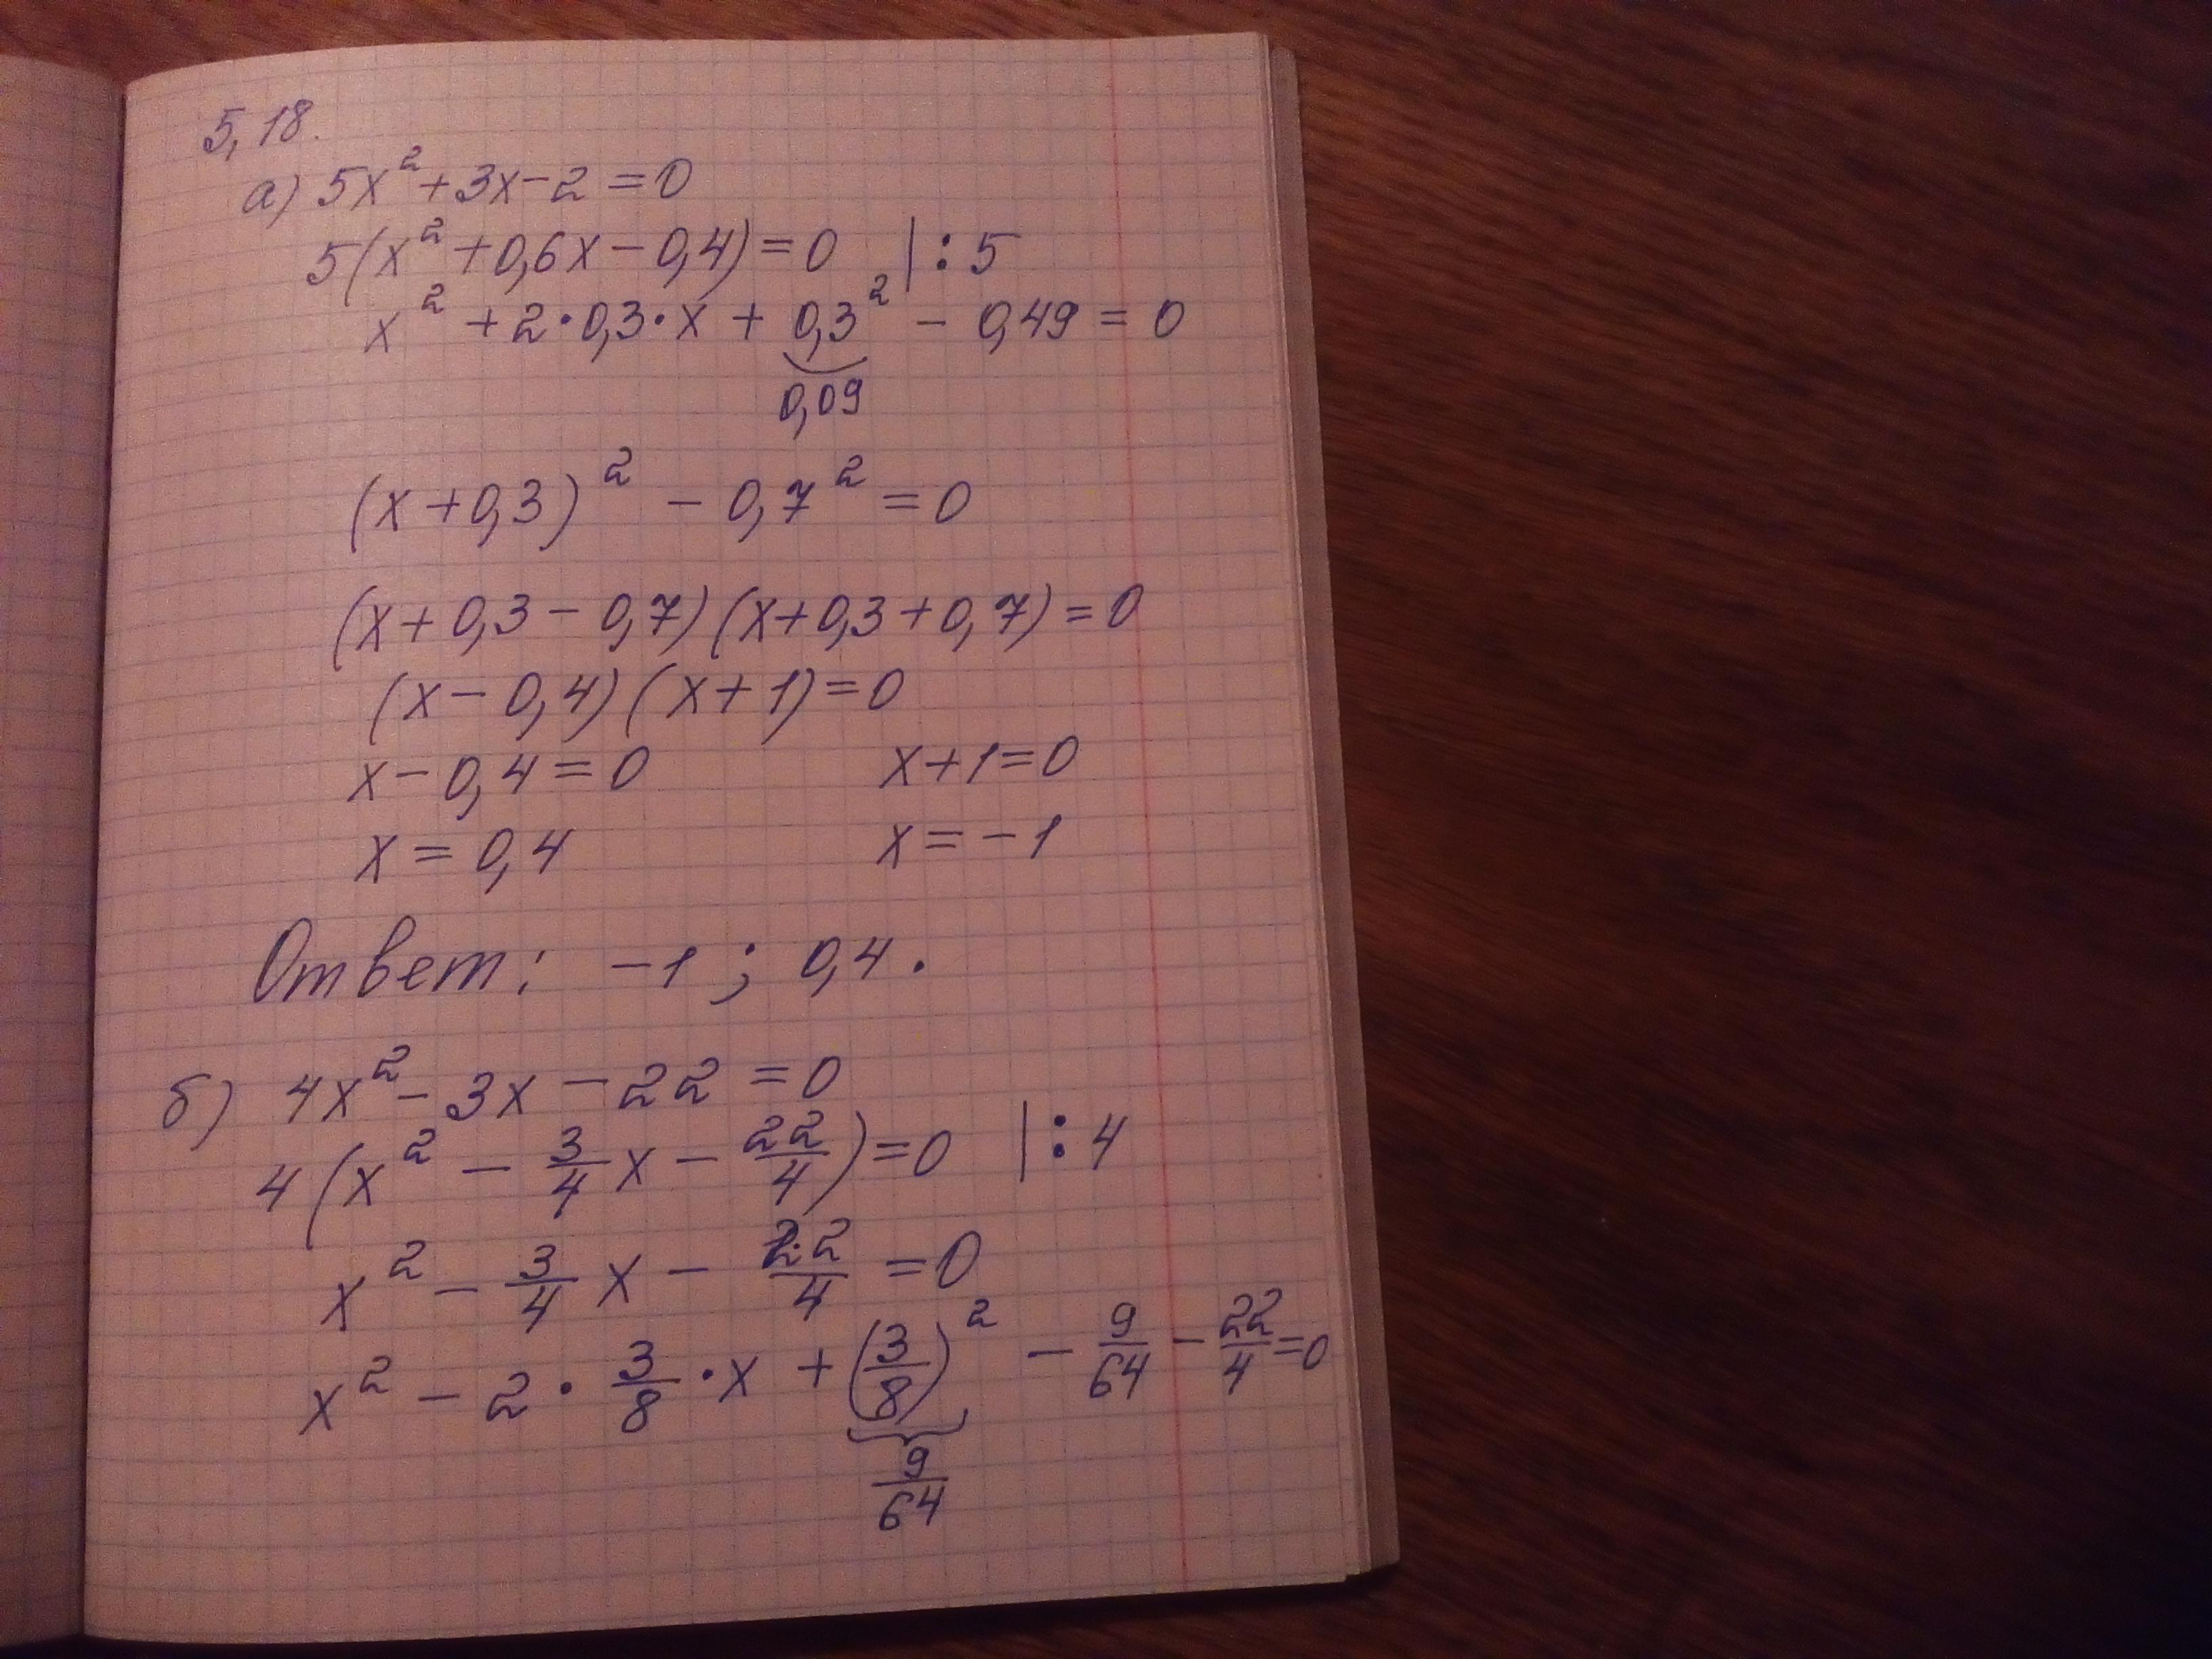 5,18.
а) 5x² + 3x - 2 = 0
5(x² + 0,6x - 0,4) = 0 | : 5
x² + 2 · 0,3 · x + 0,3² - 0,49 = 0
0,09
(x + 0,3)² - 0,7² = 0
(x + 0,3 - 0,7)(x + 0,3 + 0,7) = 0
(x - 0,4)(x + 1) = 0
x - 0,4 = 0 x + 1 = 0
x = 0,4 x = -1
Ответ: -1 ; 0,4.
б) 4x² - 3x - 22 = 0
4(x² - 3/4 x - 22/4) = 0 | : 4
x² - 3/4 x - 22/4 = 0
x² - 2 · 3/8 · x + (3/8)² - 9/64 - 22/4 = 0
9/64